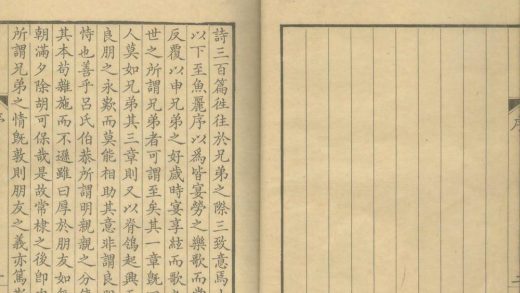 詩三百篇徃徃於兄弟之際三致意焉
以下至魚麗序以爲皆宴勞之樂歌而
反覆以申兄弟之好歲時宴享絃而歌
世之所謂兄弟者可謂至矣其一章旣
人莫如兄弟其三章則又以脊鴒起興
良朋之永歎而莫能相助其意非謂良
恃也善乎呂氏伯恭所謂明親親之分
其本苟雜施而不遜雖曰厚於朋友如
朝滿夕除胡可保哉是故常棣之後卽
所謂兄弟之情旣敦則朋友之義亦篤
序